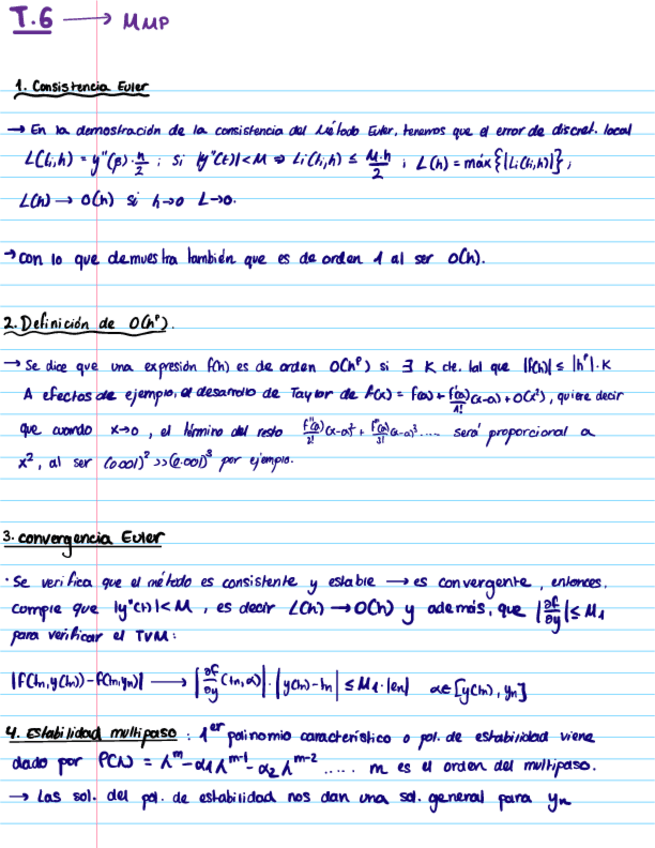 T.6 → MMP
1. Consistencia Euler
→ En la demostración de la consistencia del Método Euler, tenemos que el error de discret. local
L(ti,h) = y''(β)·h/2 ; si |y''(t)|<M ⇒ Li(ti,h) ≤ M·h/2 ; L(h) = máx{|Li(ti,h)|} ;
L(h) → O(h) si h→0 L→0.
→ con lo que demuestra también que es de orden 1 al ser O(h).
2. Definición de O(hᵖ).
→ Se dice que una expresión f(h) es de orden O(hᵖ) si ∃ K cte. tal que |f(h)| ≤ |hᵖ|·K
A efectos de ejemplo, el desarrollo de Taylor de f(x) = f(a) + f'(a)/1! (x-a) + O(x²), quiere decir
que cuando x→0, el término del resto f''(a)/2! (x-a)² + f'''(a)/3! (x-a)³ .... será proporcional a
x², al ser (0.001)² >> (0.001)³ por ejemplo.
3. convergencia Euler
· Se verifica que el método es consistente y estable → es convergente, entonces,
cumple que |y''(t)|<M, es decir L(h) → O(h) y además, que |∂f/∂y| ≤ M₁
para verificar el TVM:
|f(tn,y(tn))-f(tn,yn)| → |∂f/∂y (tn,α)|·|y(tn)-tn| ≤ M₁·|en| α∈[y(tn), yn]
4. Estabilidad multipaso : 1er poinomio característico o pol. de estabilidad viene
dado por P(λ) = λᵐ - α₁λᵐ⁻¹ - α₂λᵐ⁻² ..... m es el orden del multipaso.
→ Las sol. del pol. de estabilidad nos dan una sol. general para yn